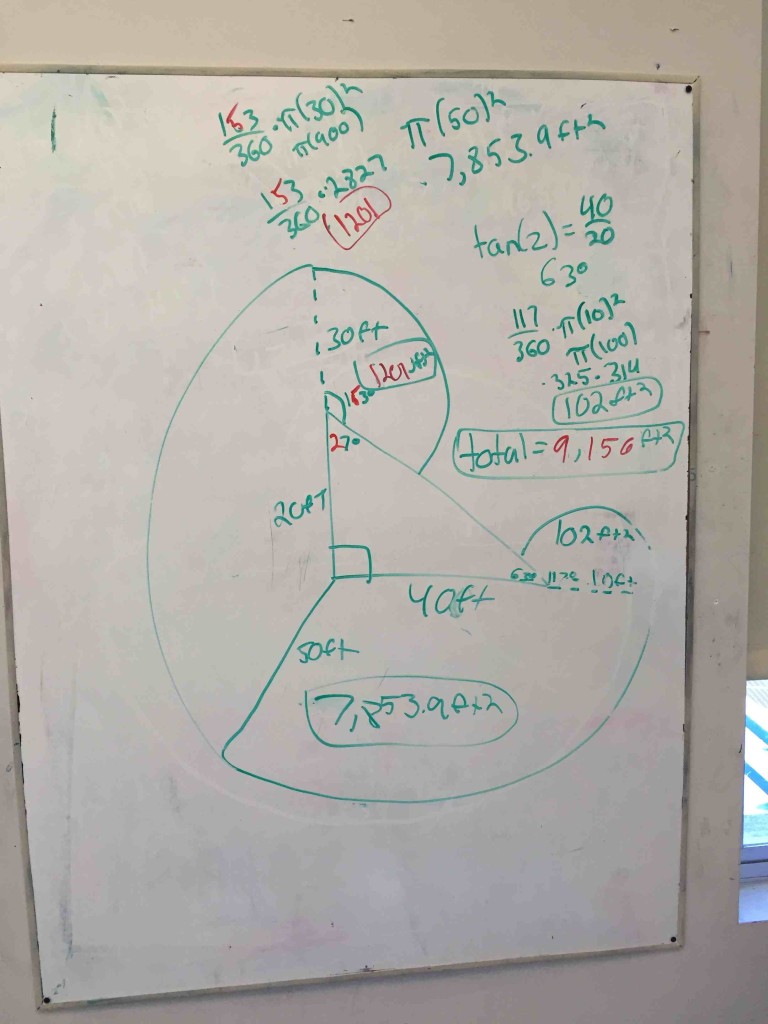 153/360 · π(30)²
π(900)
153/360 · 2827
1201
π(50)²
7,853.9ft2
tan(2) = 40/20
63°
117/360 · π(10)²
π(100)
.325 · 314
102ft2
total = 9,156 ft2
30ft
1201 ft2
153°
27°
20fT
102ft2
63° 117° 10ft
40ft
50ft
7,853.9ft2